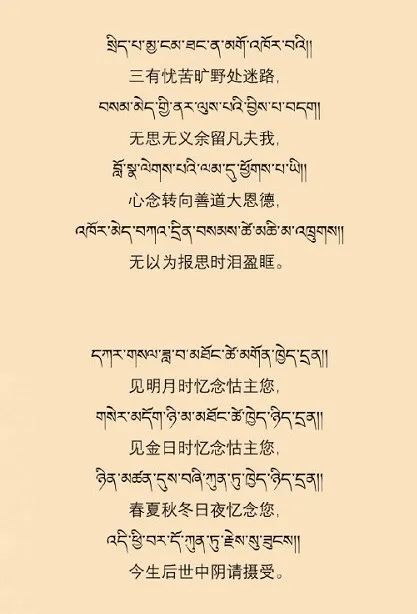 སྲིད་པ་མྱ་ངམ་ཐང་ན་མགོ་འཁོར་བའི།།
三有忧苦旷野处迷路，
བསམ་མེད་ཀྱི་ནར་ལུས་པའི་བྱིས་པ་བདག།
无思无义余留凡夫我，
བློ་སྣ་ལེགས་པའི་ལམ་དུ་ཕྱོགས་པ་ཡི།།
心念转向善道大恩德，
འཁོར་མེད་བཀའ་དྲིན་བསམས་ཚེ་མཆི་མ་འཁྲུགས།།
无以为报思时泪盈眶。
དཀར་གསལ་ཟླ་བ་མཐོང་ཚེ་མགོན་ཁྱེད་དྲན།།
见明月时忆念怙主您，
གསེར་མདོག་ཉི་མ་མཐོང་ཚེ་ཁྱེད་ཉིད་དྲན།།
见金日时忆念怙主您，
ཉིན་མཚན་དུས་བཞི་ཀུན་ཏུ་ཁྱེད་ཉིད་དྲན།།
春夏秋冬日夜忆念您，
འདི་ཕྱི་བར་དོ་ཀུན་ཏུ་རྗེས་སུ་ཟུངས།།
今生后世中阴请摄受。